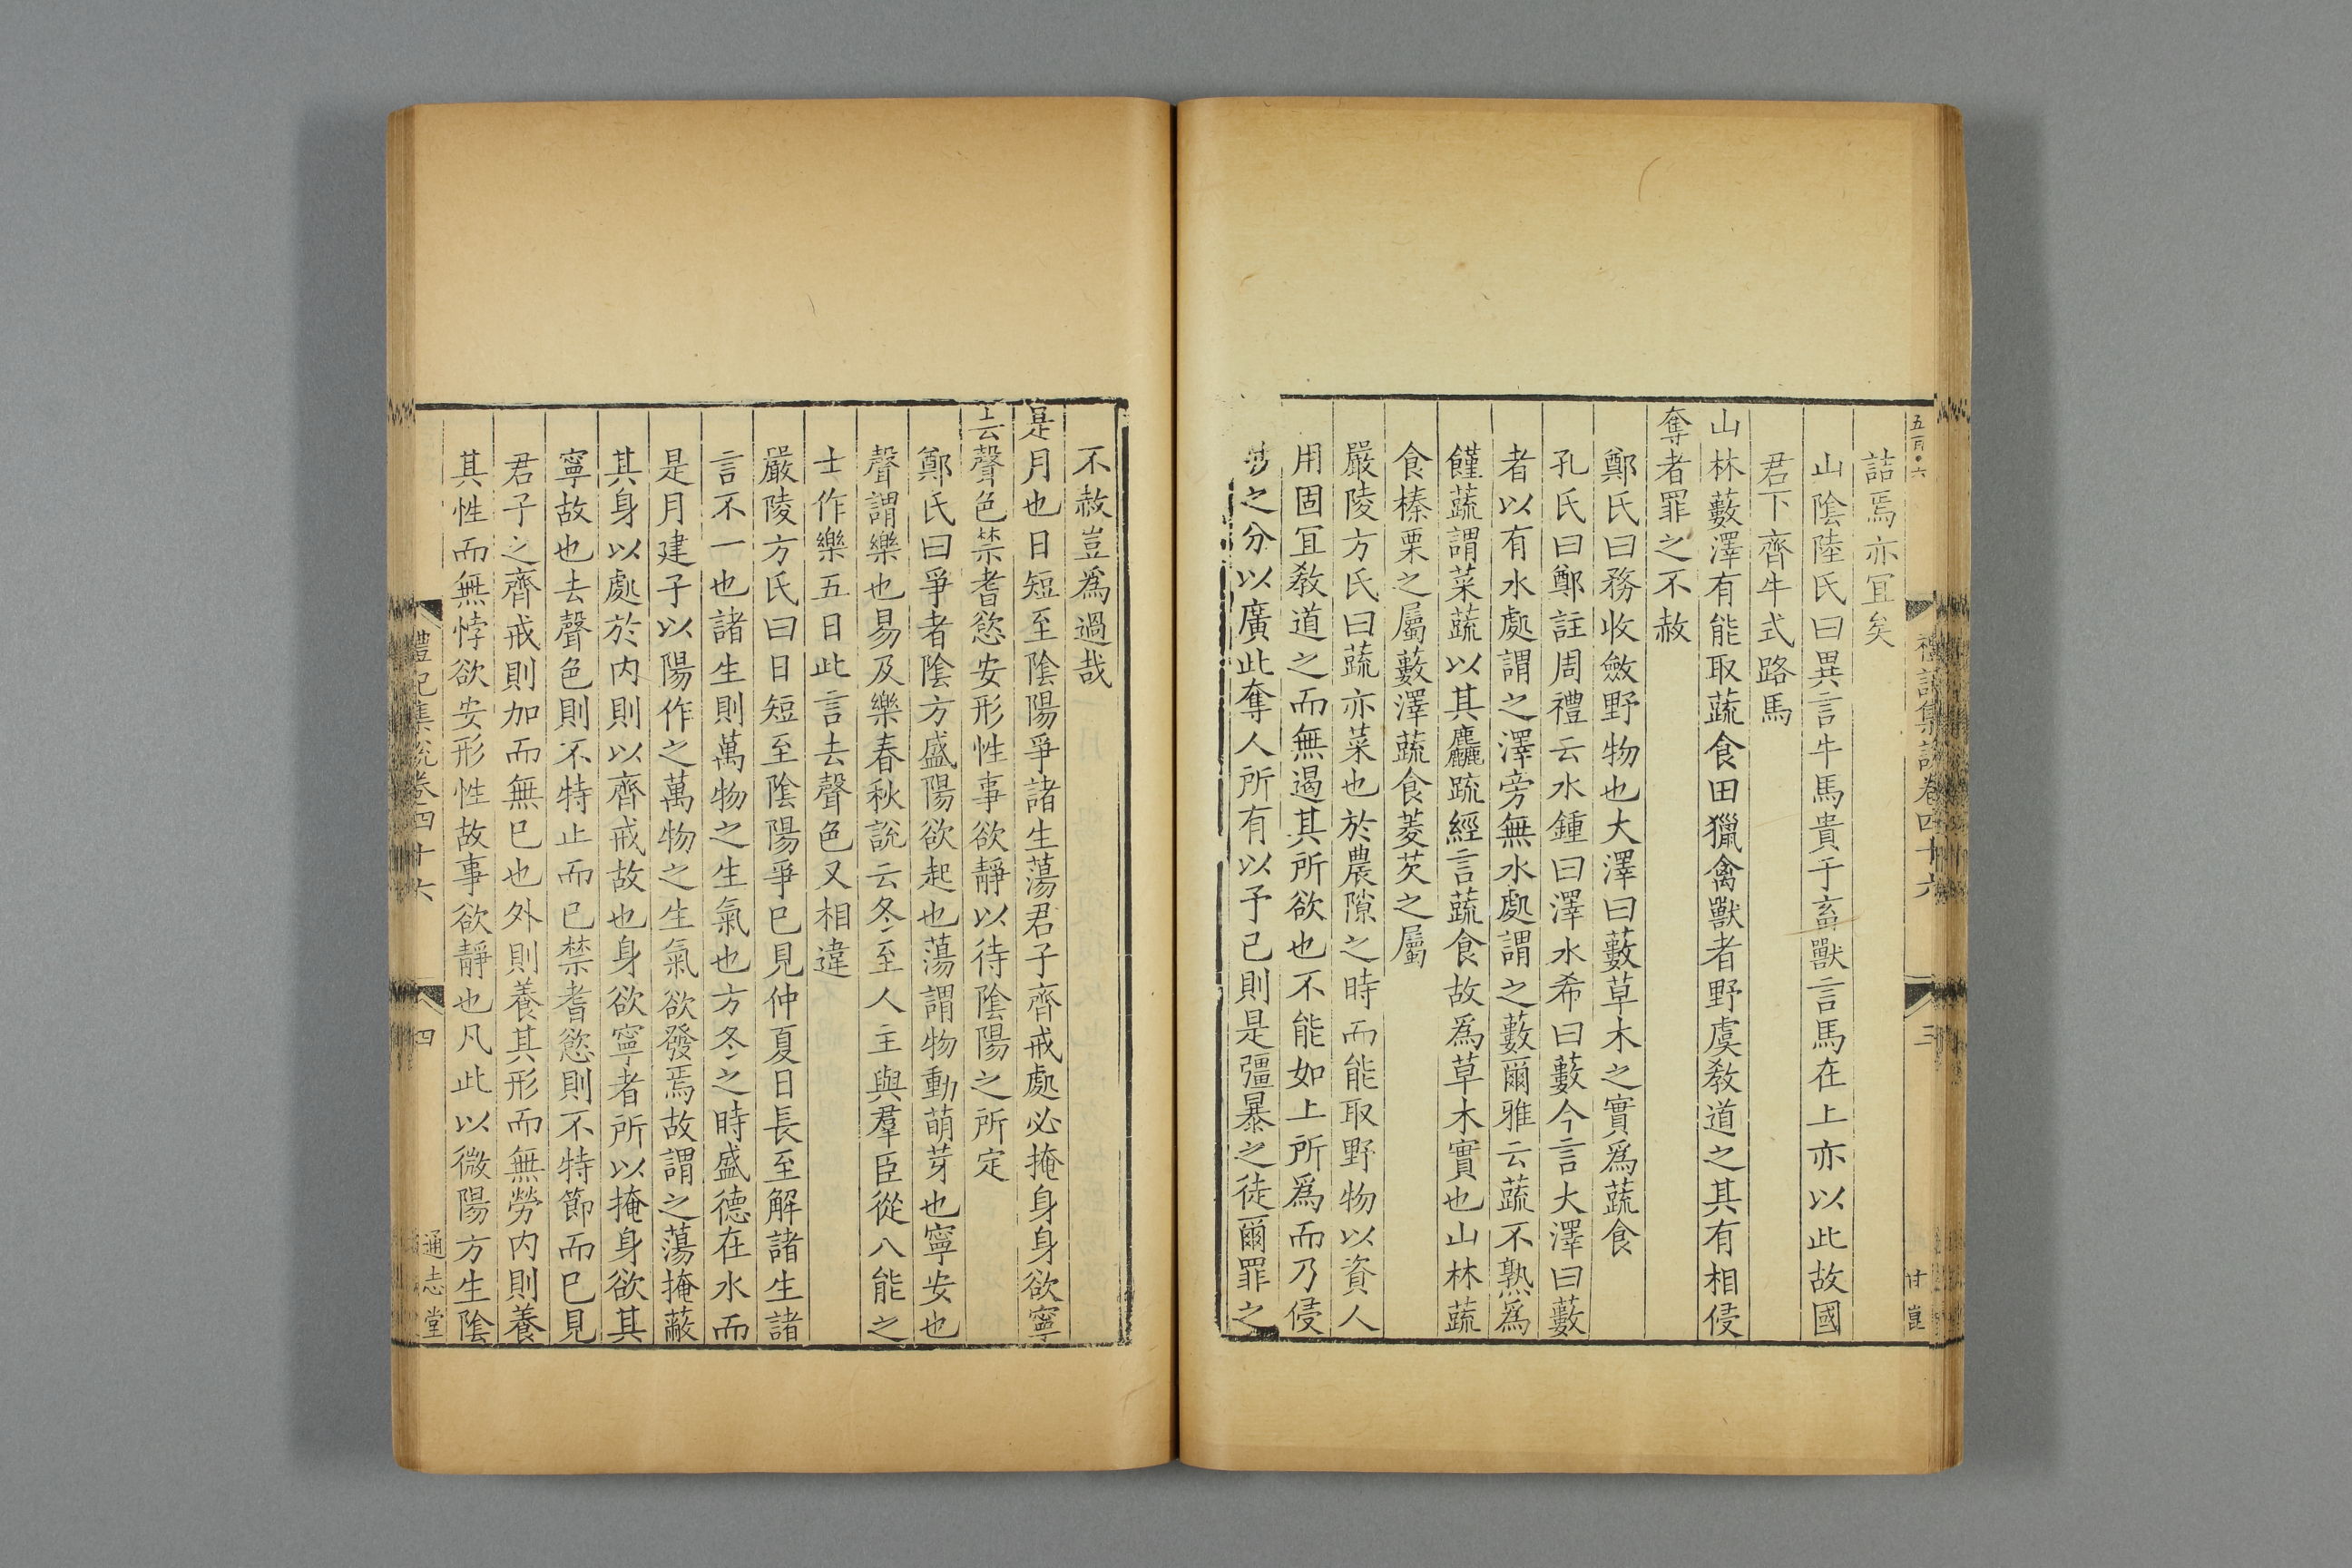 五百·六
禮記集說卷四十六
三
甘
詰焉亦宜矣
山陰陸氏曰異言牛馬貴于畜獸言馬在上亦以此故國
君下齊牛式路馬
山林藪澤有能取蔬食田獵禽獸者野虞敎道之其有相侵
奪者罪之不赦
鄭氏曰務收斂野物也大澤曰藪草木之實爲蔬食
孔氏曰鄭註周禮云水鍾曰澤水希曰藪今言大澤曰藪
者以有水處謂之澤旁無水處謂之藪爾雅云蔬不熟爲
饉蔬謂菜蔬以其麤疏經言蔬食故爲草木實也山林蔬
食榛栗之屬藪澤蔬食菱芡之屬
嚴陵方氏曰蔬亦菜也於農隙之時而能取野物以資人
用固冝敎道之而無遏其所欲也不能如上所爲而乃侵
之分以廣此奪人所有以予己則是彊暴之徒爾罪之
不赦豈爲過哉
是月也日短至陰陽爭諸生蕩君子齊戒處必掩身身欲寧
去聲色禁耆慾安形性事欲靜以待陰陽之所定
鄭氏曰爭者陰方盛陽欲起也蕩謂物動萌芽也寧安也
聲謂樂也易及樂春秋說云冬至人主與羣臣從八能之
士作樂五日此言去聲色又相違
嚴陵方氏曰日短至陰陽爭已見仲夏日長至解諸生諸
言不一也諸生則萬物之生氣也方冬之時盛德在水而
是月建子以陽作之萬物之生氣欲發焉故謂之蕩掩蔽
其身以處於内則以齊戒故也身欲寧者所以掩身欲其
寧故也去聲色則不特止而已禁耆慾則不特節而已見
君子之齊戒則加而無已也外則養其形而無勞内則養
其性而無悖欲安形性故事欲靜也凡此以微陽方生陰
禮記集說卷四十六
四
通志堂